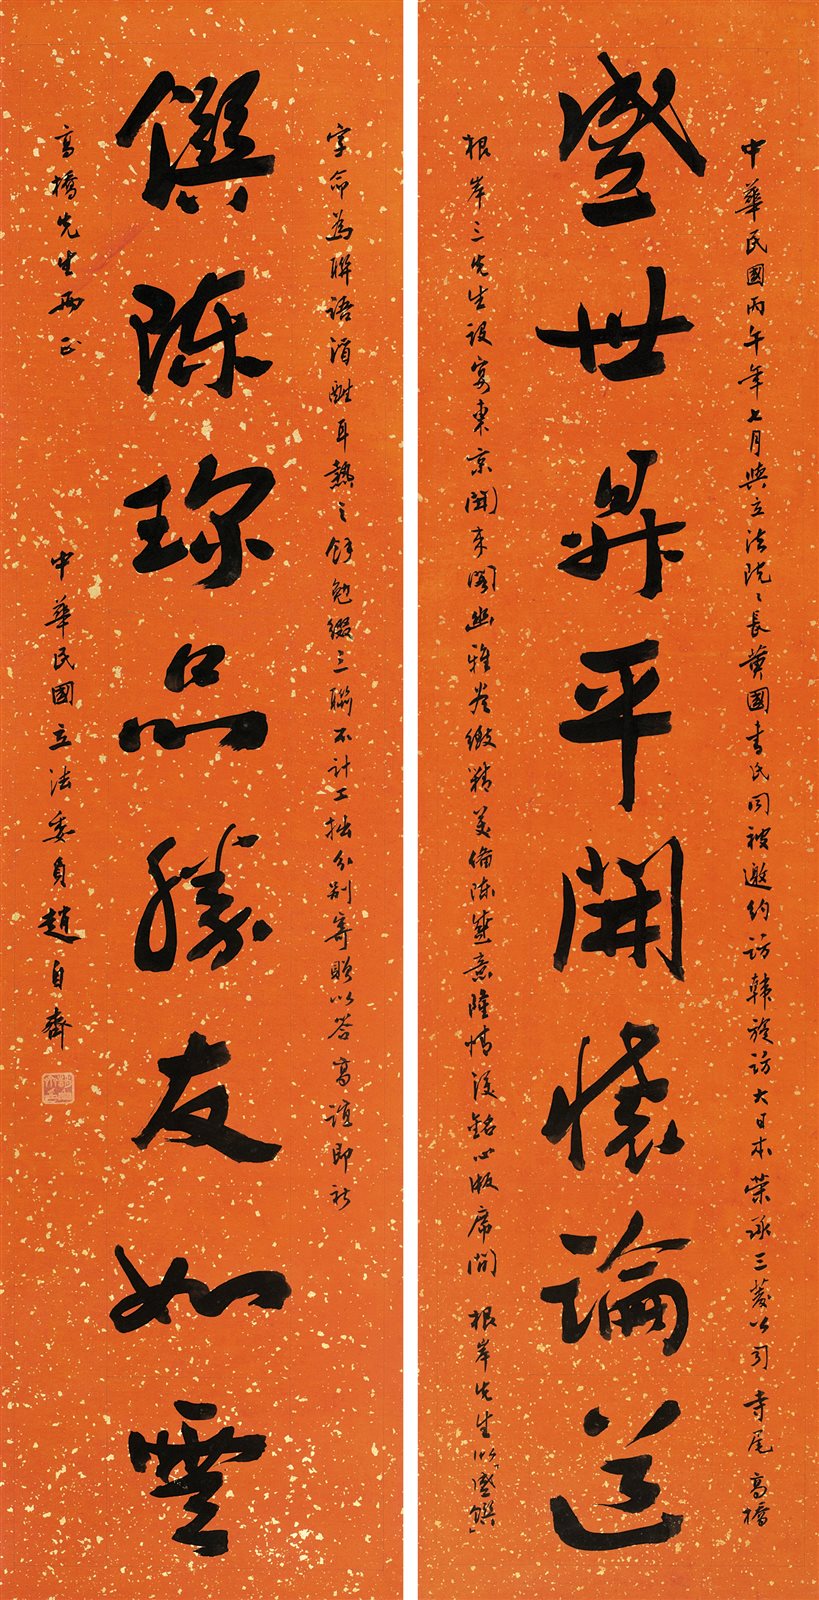 中華民國丙午年七月與立法院々長黃國書氏同被邀約訪韓旋訪大日本榮承三菱公司寺尾高橋
盛世昇平開懷論道
根岸三先生設宴東京閣幽雅緻精美備陳盛意隆情深銘心版席間根岸先生以「盛饌」
字命為聯語酒酣耳熱之餘勉綴三聯不計工拙分別寄贈以答高誼即祈
饌陳珍品勝友如雲
高橋先生兩正
中華民國立法委員趙自齊